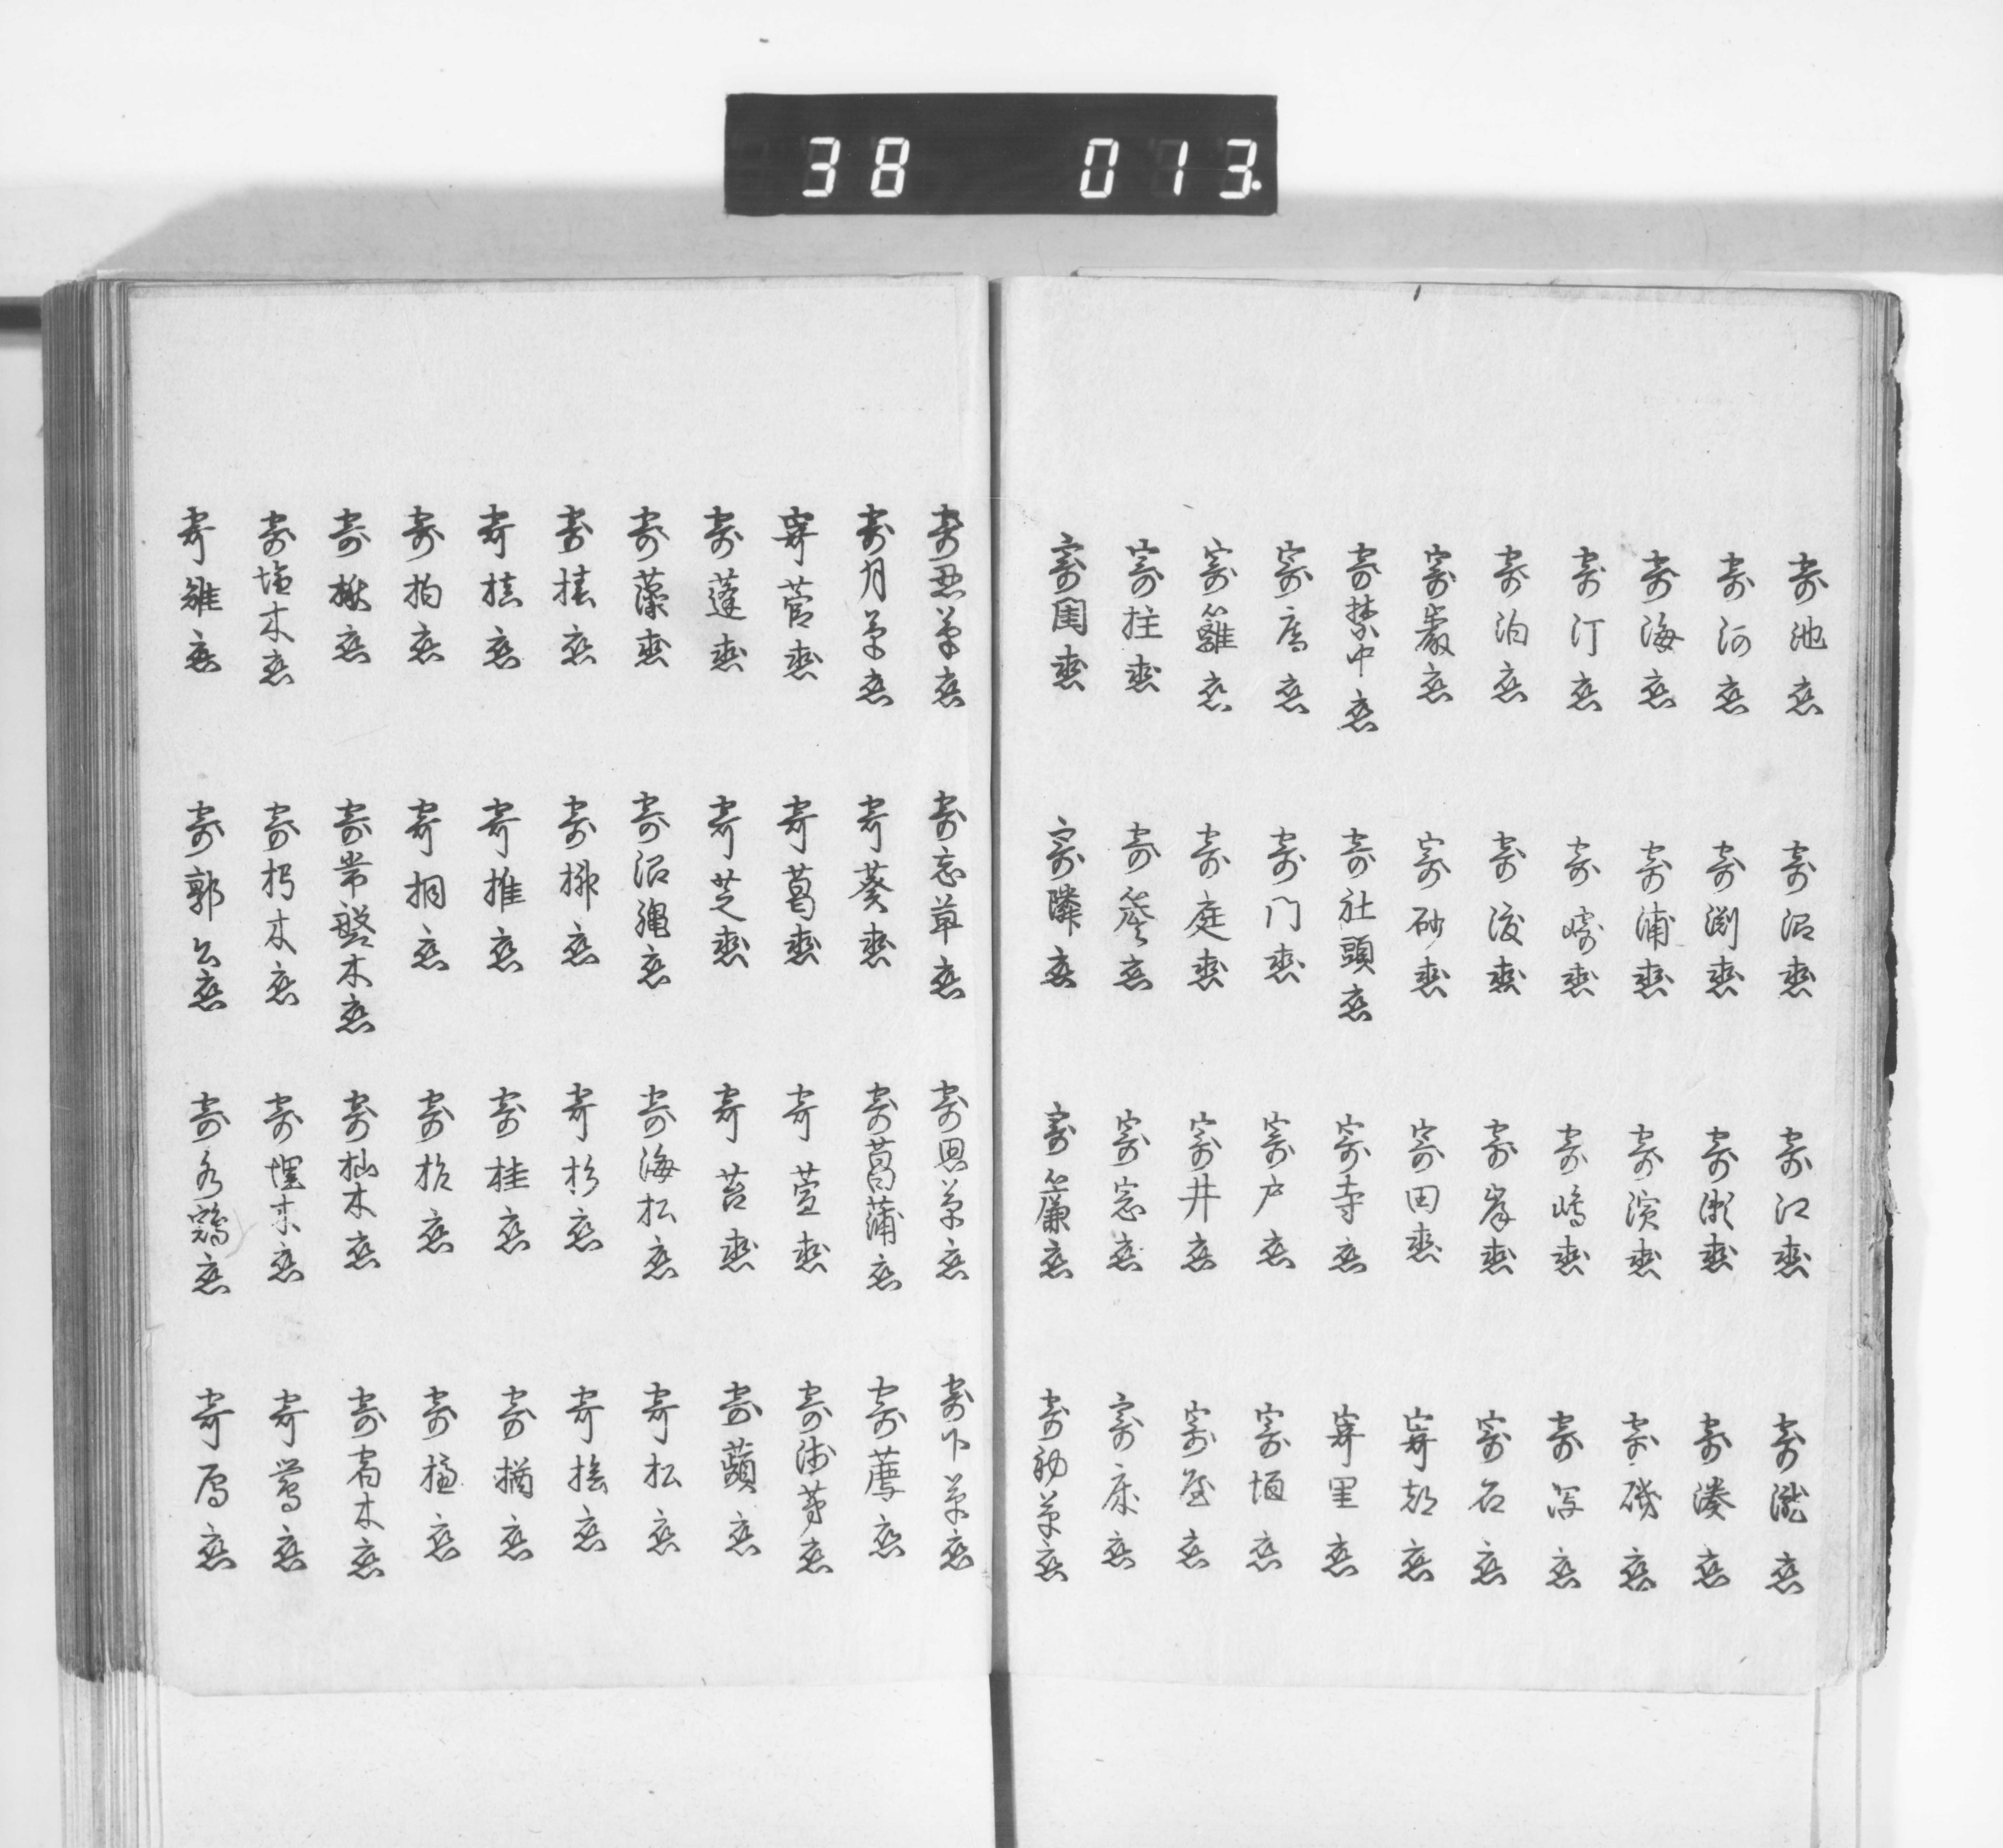 38 013.
寄池恋 寄沼恋 寄江恋 寄滝恋
寄河恋 寄渕恋 寄瀬恋 寄湊恋
寄海恋 寄浦恋 寄濱恋 寄磯恋
寄汀恋 寄崎恋 寄嶋恋 寄潟恋
寄泊恋 寄渡恋 寄岸恋 寄石恋
寄巖恋 寄砂恋 寄田恋 寄都恋
寄禁中恋 寄社頭恋 寄寺恋 寄里恋
寄宿恋 寄门恋 寄戸恋 寄垣恋
寄籬恋 寄庭恋 寄井恋 寄屋恋
寄柱恋 寄簷恋 寄窓恋 寄床恋
寄閨恋 寄隣恋 寄簾恋 寄初草恋
寄忍草恋 寄忘草恋 寄思草恋 寄下草恋
寄月草恋 寄葵恋 寄菖蒲恋 寄薄恋
寄菅恋 寄葛恋 寄萱恋 寄浅茅恋
寄蓬恋 寄芝恋 寄苔恋 寄蘋恋
寄藻恋 寄沼縄恋 寄海松恋 寄松恋
寄椿恋 寄榊恋 寄杉恋 寄桧恋
寄槙恋 寄椎恋 寄桂恋 寄楢恋
寄柏恋 寄桐恋 寄恋 寄恋
寄楸恋 寄常盤木恋 寄杣木恋 寄宿木恋
寄塩木恋 寄朽木恋 寄埋木恋 寄鴬恋
寄雉恋 寄郭公恋 寄水鶏恋 寄鴈恋